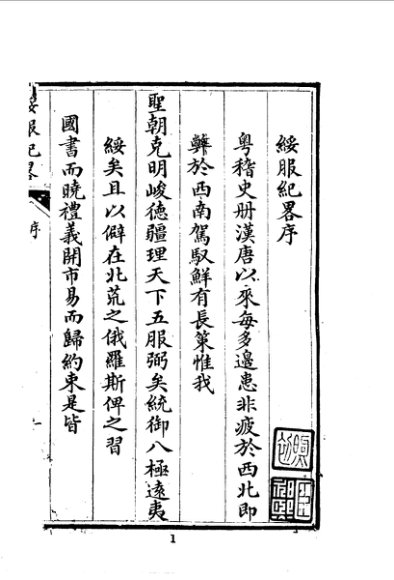 綏服紀畧序
粤稽史册漢唐以來每多邊患非疲於西北即
弊於西南駕馭鮮有長策惟我
聖朝克明峻德疆理天下五服弼矣統御八極遠夷
綏矣且以僻在北荒之俄羅斯俾之習
國書而曉禮義開市易而歸約束是皆
綏服紀畧
序
一
1